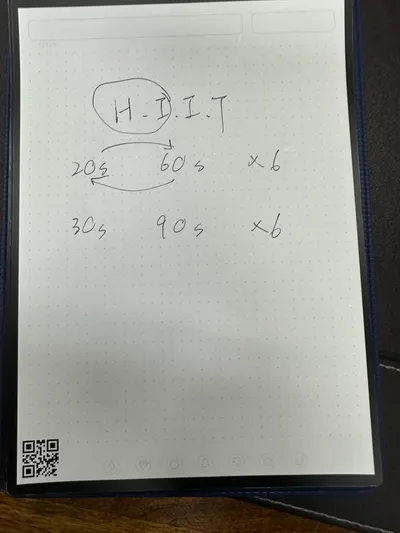 H.I.I.T
20s 60s ×6
30s 90s ×6